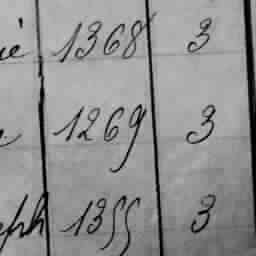 ié 1368 3
1269 3
eph 1355 3